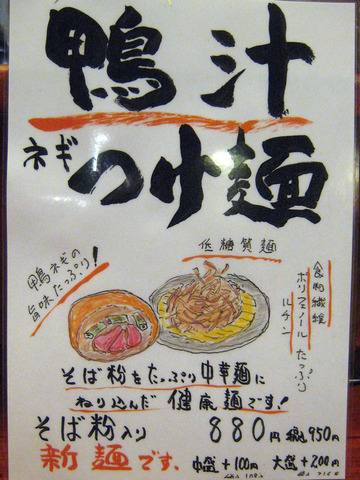 鴨汁
ネギ
つけ麺
鴨ネギの
旨味たっぷり!
低糖質麺
食物繊維
ポリフェノール たっぷり
ルチン
そば粉をたっぷり中華麺に
ねり込んだ 健康麺です!
そば粉入り 880円 税込950円
新麺です、 中盛+100円 大盛+200円